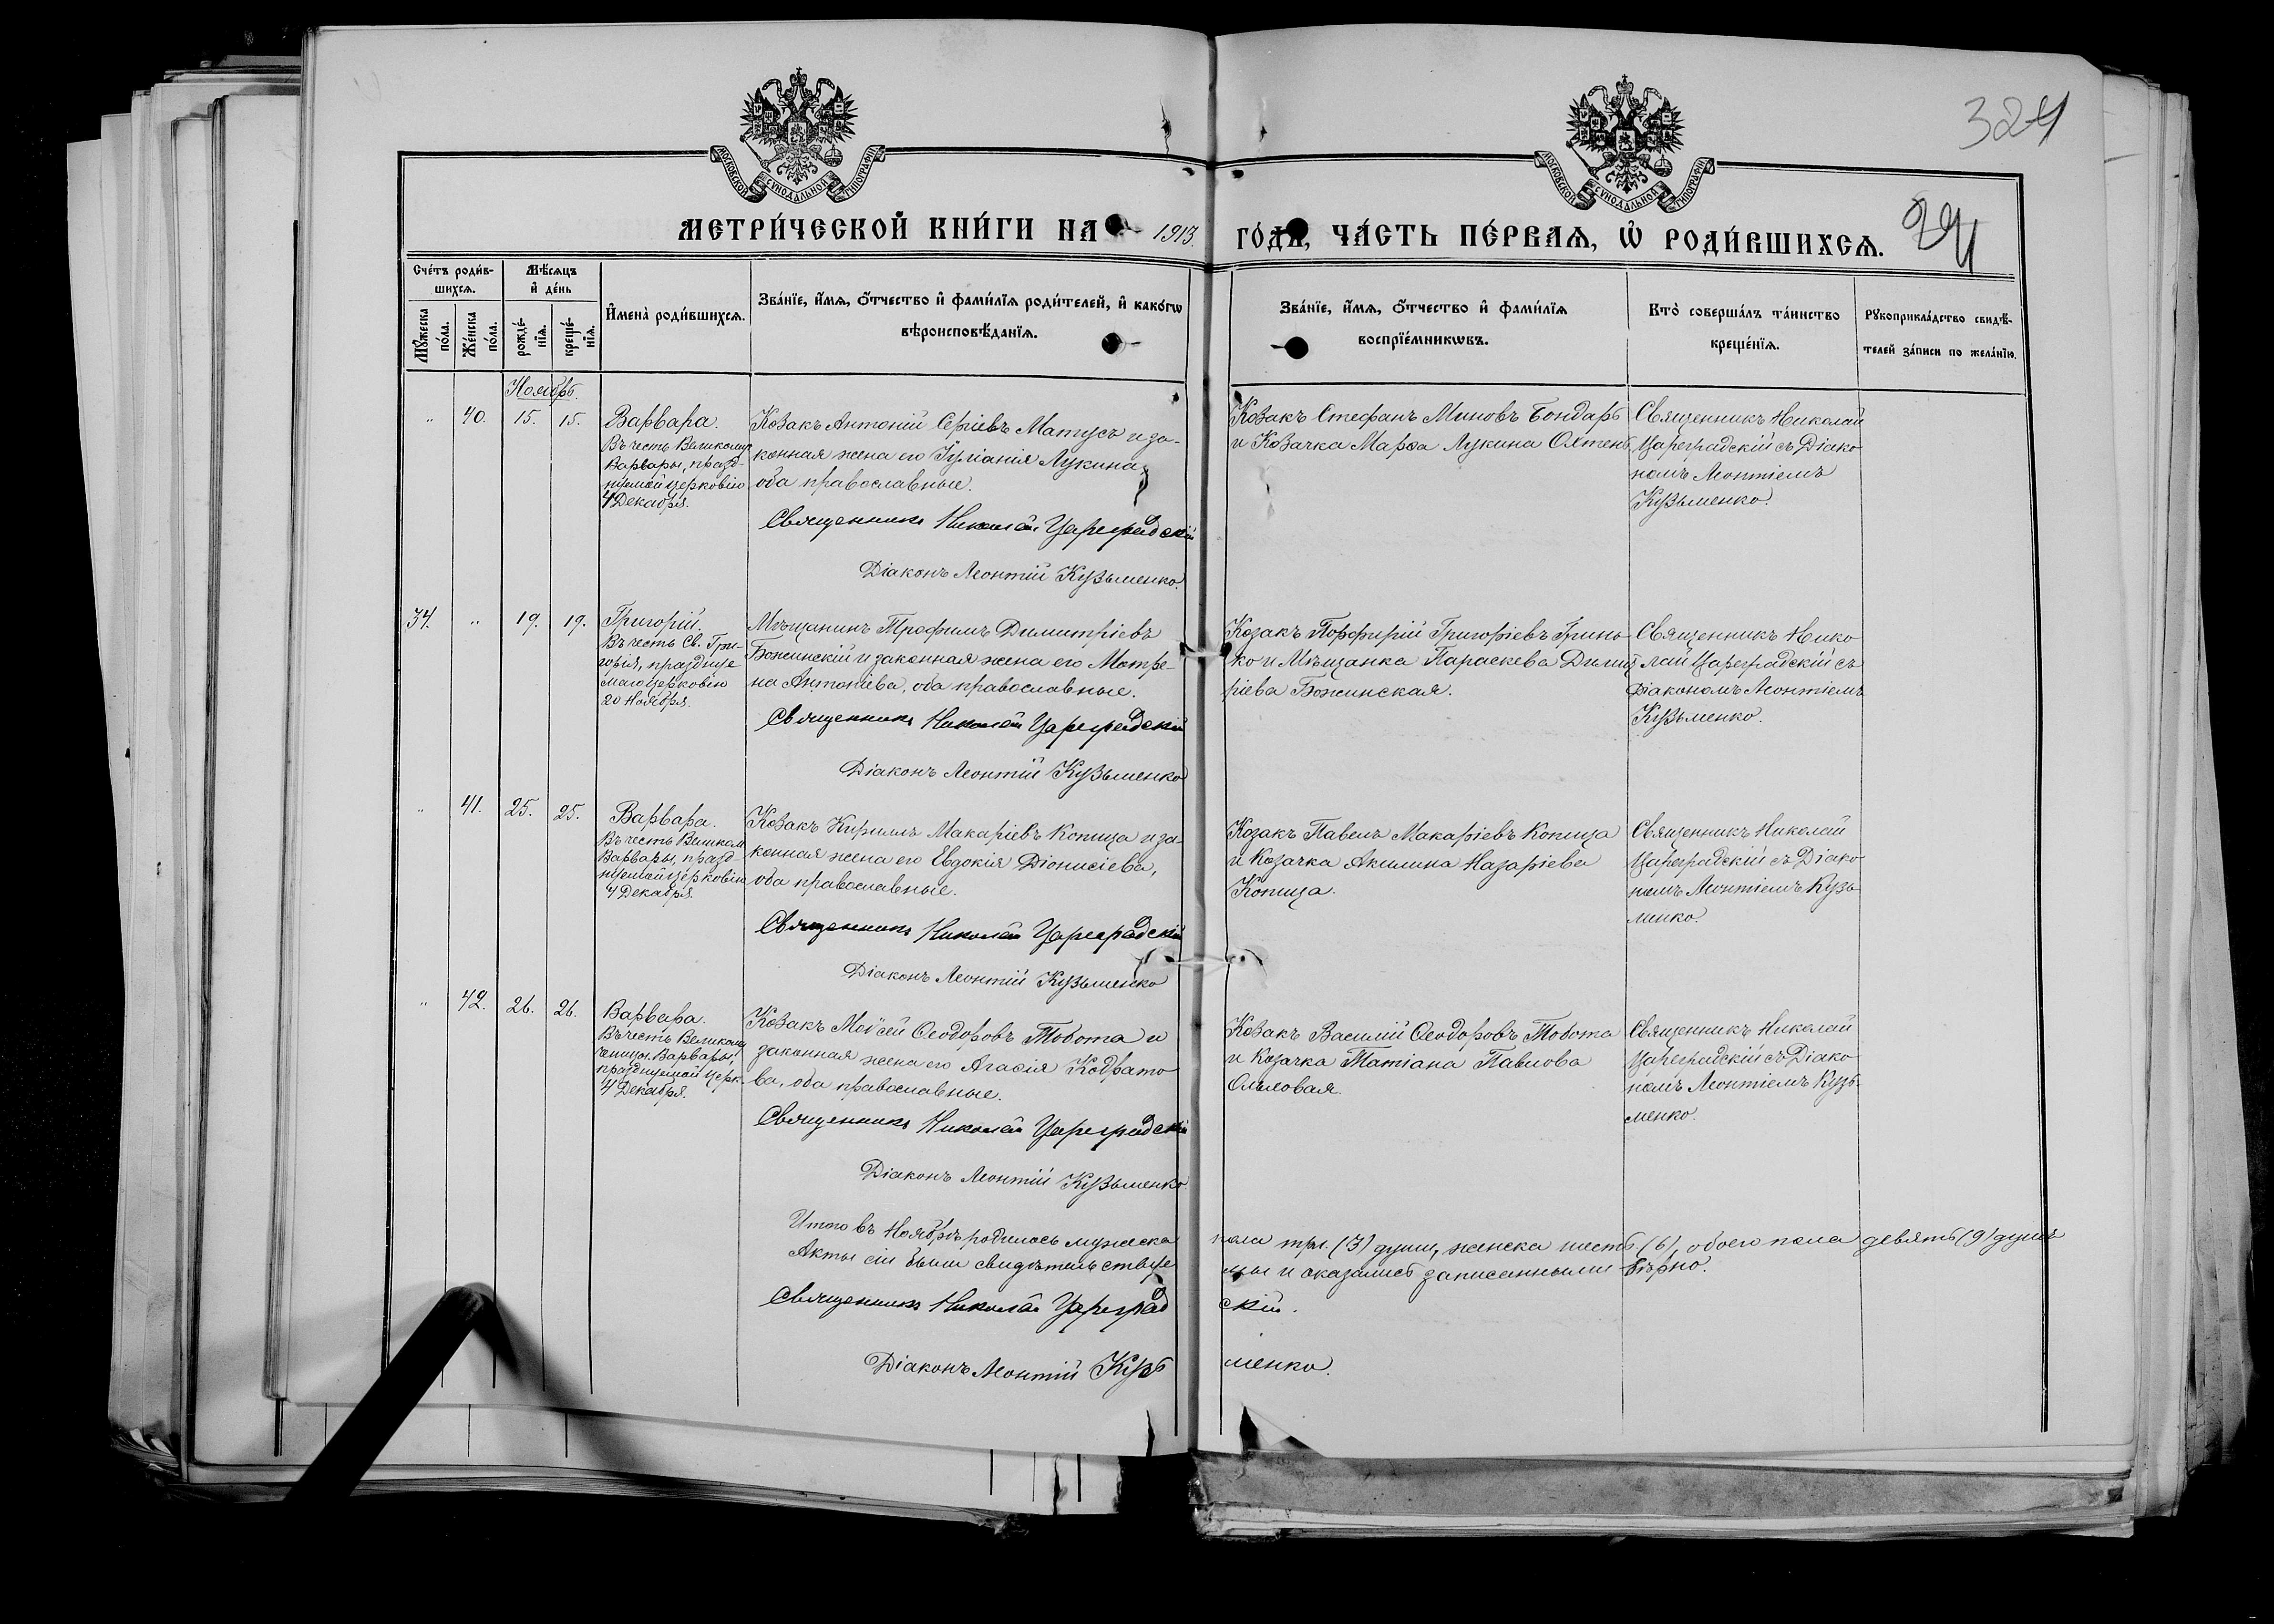 324
МОСКОВСКОЙ СУНОДАЛЬНОЙ ТИПОГРАФІИ
МОСКОВСКОЙ СУНОДАЛЬНОЙ ТИПОГРАФІИ
МЕТРИ́ЧЕСКОЙ КНИ́ГИ НА 1913. ГО́ДЪ, ЧА́СТЬ ПЕ́РВАѦ, Ѽ РОДИ́ВШИХСѦ.
Сче́тъ роди́в-
шихсѧ.
Мѣ́сѧцъ
и҆ де́нь
Мꙋ́жеска
по́ла.
Же́нска
по́ла.
рожде́-
нїѧ.
креще́-
нїѧ.
И҆мена̀ роди́вшихсѧ.
Зва́нїе, и҆́мѧ, ѻ҆́тчество и҆ фами́лїѧ роди́телей, и҆ како́гѡ
вѣроисповѣ́данїѧ.
Зва́нїе, и҆́мѧ, ѻ҆́тчество и҆ фами́лїѧ
воспрїе́мникѡвъ.
Кто̀ соверша́лъ та́инство
креще́нїѧ.
Рꙋкоприкла́дство свидѣ́-
телей за́писи по жела́нїю.
Ноябрь.
" 40. 15. 15.
Варвара.
Въ честь Великому
Варвары, празд-
нуемой церковію
4 Декабря.
Козакъ Антоній Сергіевъ Матусъ и за-
конная жена его Іуліанія Лукина,
оба православные.
Священникъ Николай Цареградскій
Діаконъ Леонтій Кузьменко.
Козакъ Стефанъ Миновъ Бондарь
и Козачка Марѳа Лукина Охтень
Священникъ Николай
Цареградскій съ Діако
номъ Леонтіемъ
Кузьменко.
34. " 19. 19.
Григорій.
Въ честь Св. Гри-
горія, празднуе
маго церковію
20 Ноября.
Мѣщанинъ Трофимъ Димитріевъ
Божинскій и законная жена его Мотре-
на Антоніева, оба православные.
Священникъ Николай Цареградскій
Діаконъ Леонтій Кузьменко
Козакъ Порфирій Григоріевъ Гринь
ко и Мѣщанка Параскева Димит
ріева Божинская.
Священникъ Нико
лай Цареградскій съ
Діакономъ Леонтіемъ
Кузьменко.
" 41. 25. 25.
Варвара.
Въ честь Великом
Варвары, празд-
нуемой церковію
4 Декабря.
Козакъ Кириллъ Макаріевъ Копица и за-
конная жена его Евдокія Діонисіева,
оба православные.
Священникъ Николай Цареградскій
Діаконъ Леонтій Кузьменко
Козакъ Павелъ Макаріевъ Копица
и Козачка Акилина Назаріева
Копица.
Священникъ Николай
Цареградскій съ Діако
номъ Леонтіемъ Кузь
менко.
" 42. 26. 26.
Варвара.
Въ честь Великому
ченицы Варвары,
празднуемой церк.
4 Декабря.
Козакъ Моѵсей Ѳеодоровъ Товота и
законная жена его Агаѳія Кодрато
ва, оба православные.
Священникъ Николай Цареградскій
Діаконъ Леонтій Кузьменко.
Козакъ Василій Ѳеодоровъ Товота
и Козачка Татіана Павлова
Священникъ Николай
Цареградскій съ Діако
номъ Леонтіемъ Кузь-
менко.
Итого въ Ноябрѣ родилось мужеска пола три (3) души, женска шесть (6), обоего пола девять (9) душъ
Акты сіи были свидѣтельствуе мы и оказались записанными вѣрно.
Священникъ Николай Цареград скій.
Діаконъ Леонтій Кузь менко.